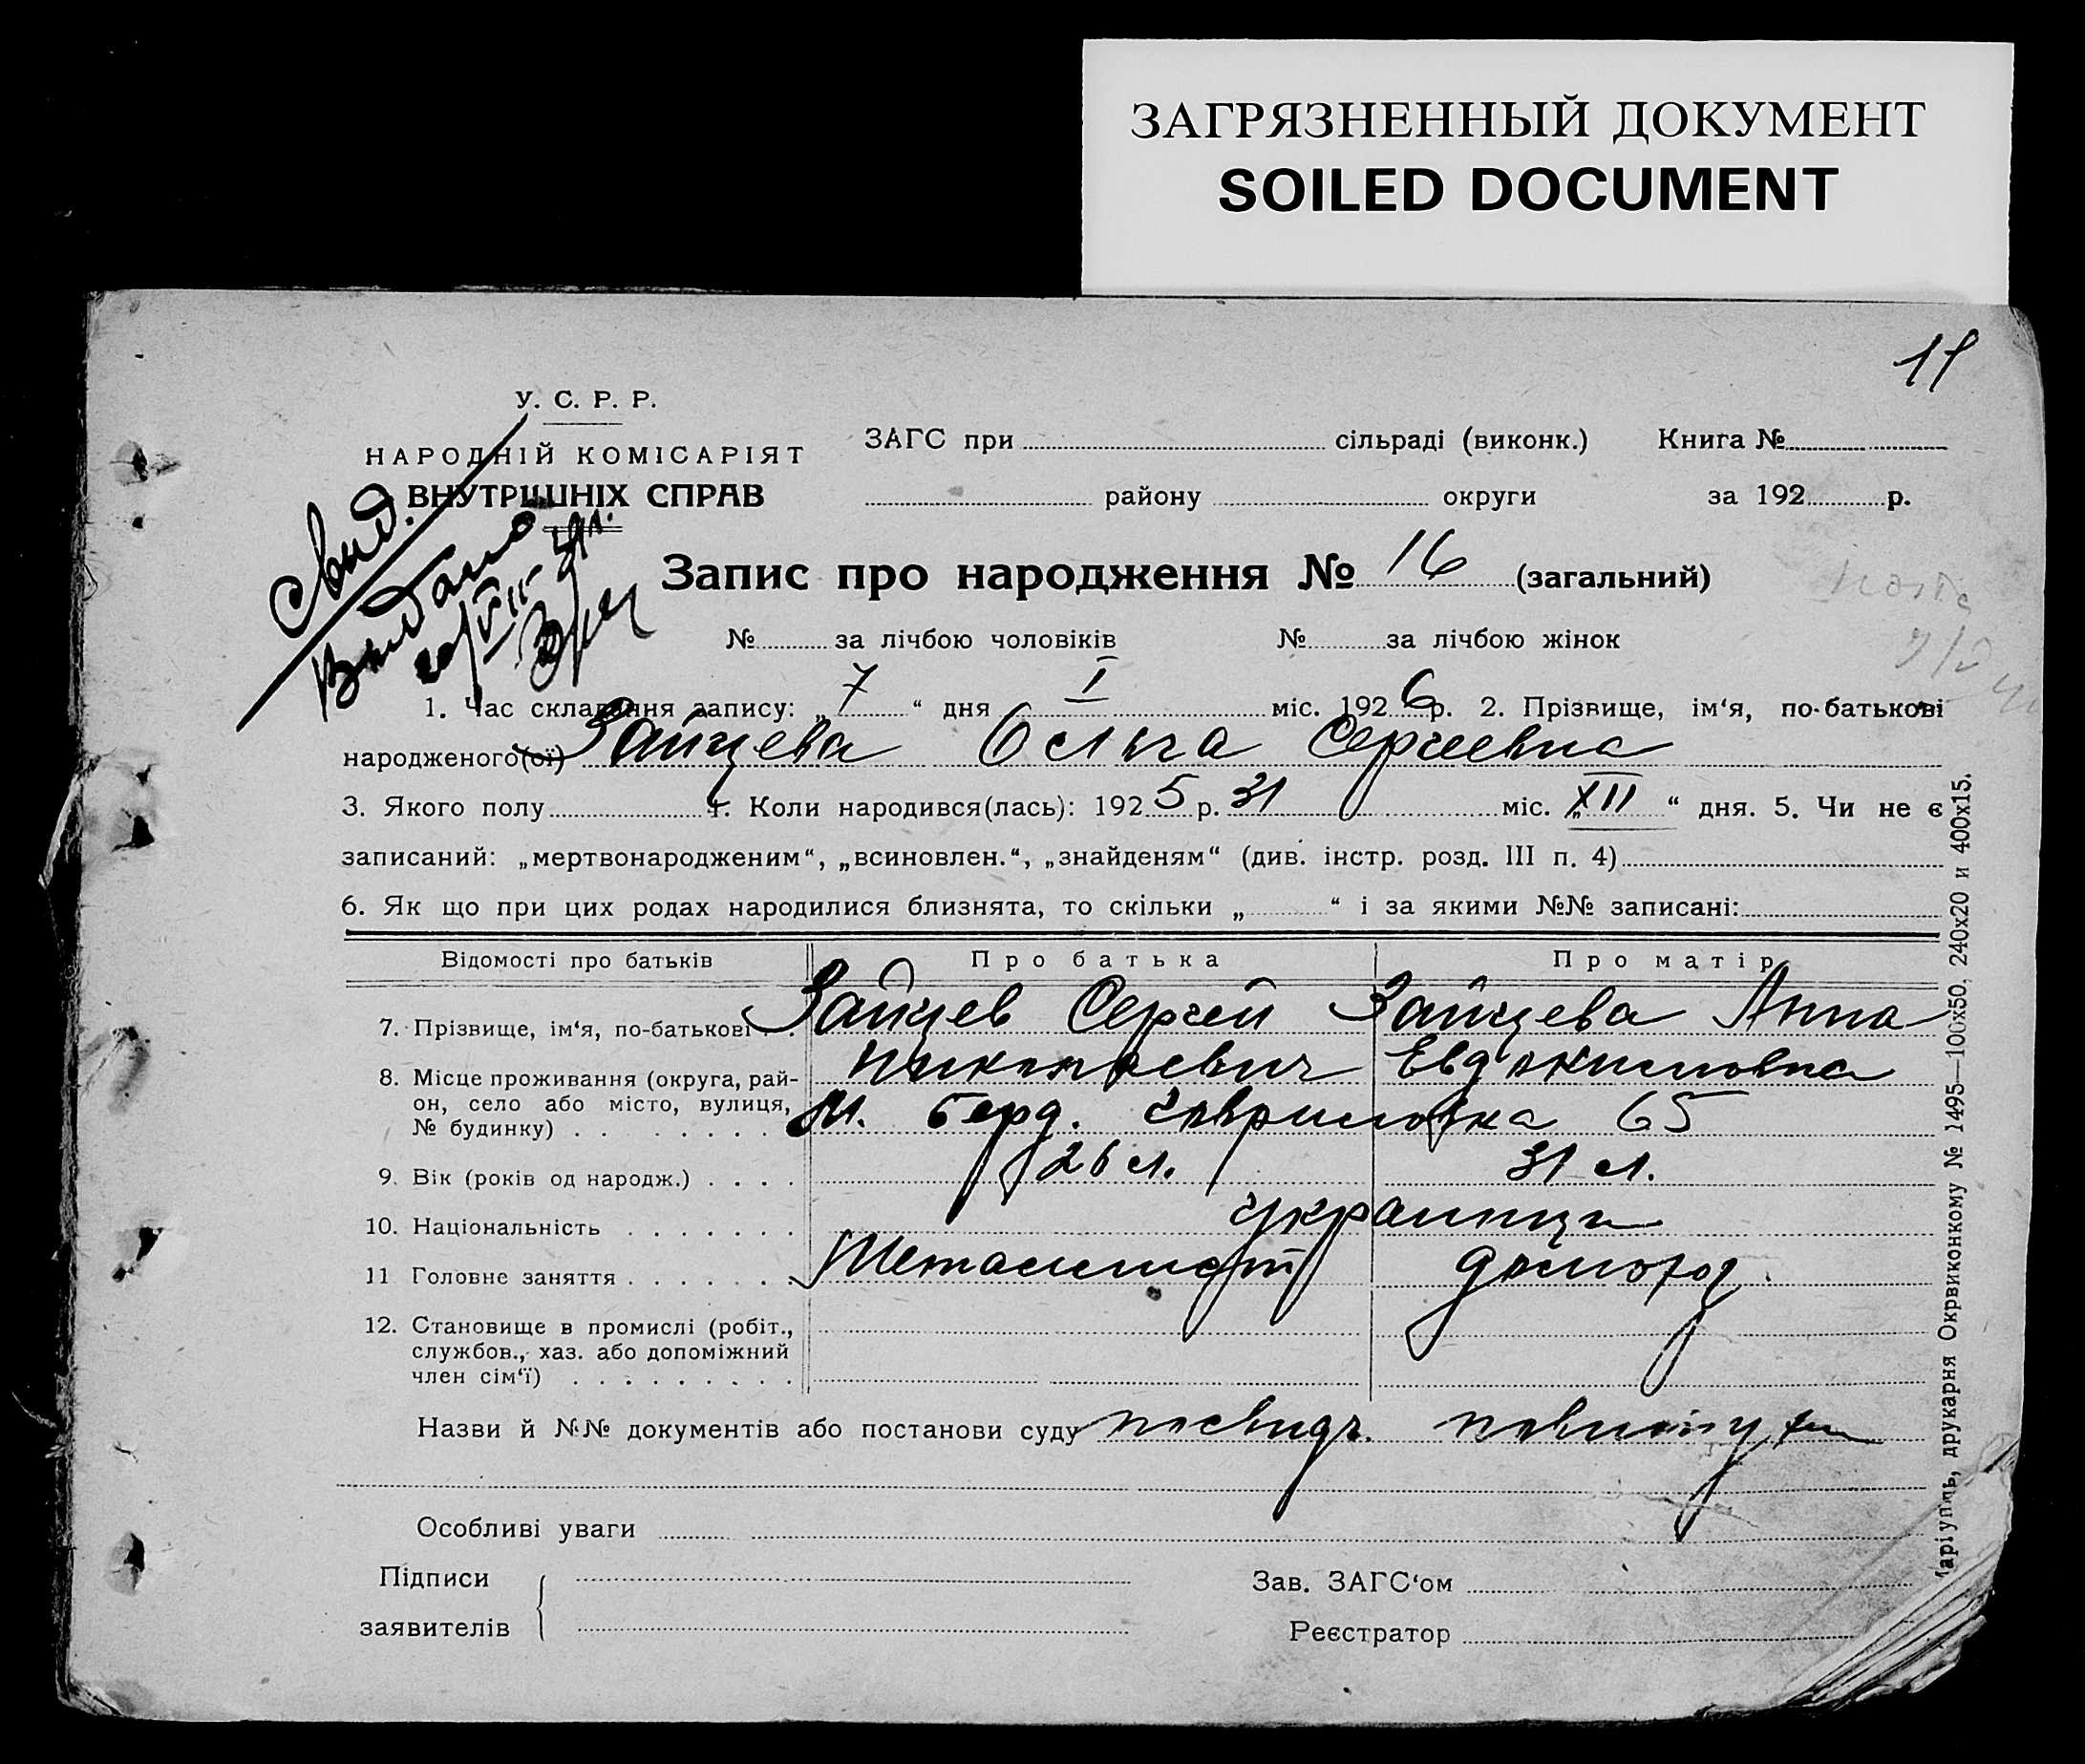 ЗАГРЯЗНЕННЫЙ ДОКУМЕНТ
SOILED DOCUMENT
11
У. С. Р. Р.
НАРОДНІЙ КОМІСАРІЯТ
ВНУТРІШНІХ СПРАВ
ЗАГС при сільраді (виконк.) Книга №
району округи за 192 р.
Свид.
Выдано
Запис про народження № 16 (загальний)
№ за лічбою чоловіків № за лічбою жінок
1. Час складання запису: „ 7 “ дня I міс. 1926 р. 2. Прізвище, ім‘я, по-батькові
народженого(ої) Зайцева Ольга Сергеевна
3. Якого полу 4. Коли народився(лась): 1925 р. 31 міс. „ XII “ дня. 5. Чи не є
записаний: „мертвонародженим“, „всиновлен.“, „знайденям“ (див. інстр. розд. III п. 4)
6. Як що при цих родах народилися близнята, то скільки „ “ і за якими №№ записані:
Відомості про батьків Про батька Про матір
7. Прізвище, ім‘я, по-батькові Зайцев Сергей Зайцева Анна
Евдокимовна
8. Місце проживання (округа, рай-
он, село або місто, вулиця,
№ будинку) М. Берд. Гавриловка 65
9. Вік (років од народж.) 26 л. 31 л.
10. Національність украинцы
11 Головне заняття Металлист домохоз.
12. Становище в промислі (робіт.,
службов., хаз. або допоміжний
член сім‘ї)
Назви й №№ документів або постанови суду посвидч.
Особливі уваги
Підписи
заявителів
Зав. ЗАГС‘ом
Реєстратор
Маріупль, друкарня Окрвиконкому № 1495—100х50, 240х20 и 400х15.